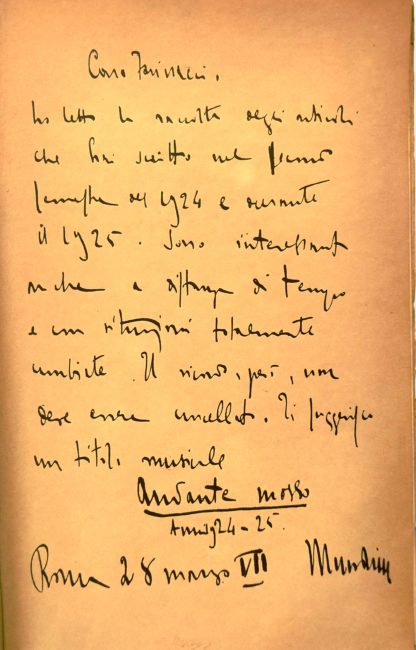 Caro Farinacci,
ho letto la raccolta degli articoli
che hai scritto nel secondo
semestre del 1924 e durante
il 1925. Sono interessanti
anche a distanza di tempo
e con situazioni totalmente
cambiate. Il ricordo, però, non
deve essere cancellato. Ti suggerisco
un titolo musicale
Andante mosso
Anni 924-25.
Roma 28 marzo VII Mussolini